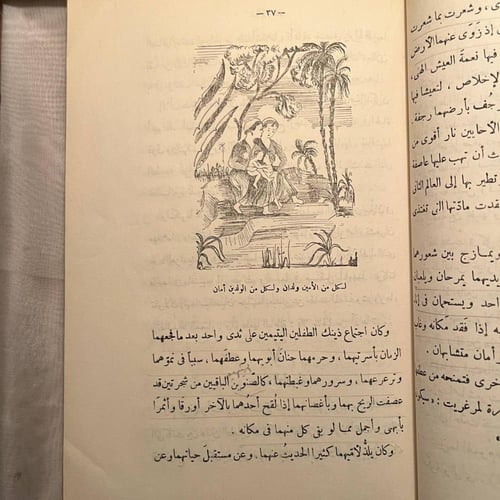 — ٣٧ —
لكل من الأمين ولدان ولكل من الولدين أمان
وكان اجتماع ذينك الطفلين اليتيمين على ثدى واحد بعد ما فجعهما
الزمان بأسرتيهما، وحرمهما حنان أبويهما وعطفهما، سببا فى نموّهما
وترعرعهما، وسرورهما وغبطتهما، كالصنوين الباقيين من شجرتين قد
عصفت الريح بهما وبأغصانهما إذا لقّح أحدهما بالآخر أورقا وأثمرا
بأبهى وأجمل مما لو بقى كل منهما فى مكانه .
وكان يلذّ لأميهما كثيرا الحديث عنهما، وعن مستقبل حياتهما وعن
ى، وشعرت بما شعرت
إذ زوى عنهما الأرض
فيها نعمة العيش الهنى،
لإخلاص ، لتعيشا فيها
جف بأرضهما رجفة
الأحايين نار أقوى من
ث أن تهب عليها عاصفة
تطير بها إلى العالم الثانى
فقدت مادتها التى تغتذى
ويمازج بين شعورهما
يديهما يمرحان ويلعبان
احد ويستحمان فى إناء
إذا فقد مكانه وعاد
أمان متشابهان .
أخرى فتمنحه من عطف
رة لمرغريت : وسيكون